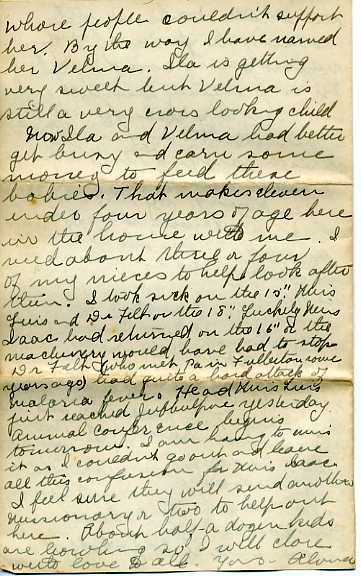 whose people couldn't support
her. By the way I have named
her Velma. Ila is getting
very sweet but Velma is
still a very cross looking child
Now Ila and Velma had better
get busy and earn some
money to feed these
babies. That makes eleven
under four years of age here
in the house with me. I
need about three or four
of my nieces to help look after
them. I took sick on the 15". Miss
and Dr Felt on the 18". Luckily Miss
Isaac had returned on the 16" or the
machinery would have had to stop
Dr Felt (who met Fullerton some
years ago) had quite a hard attack of
malaria fever.
just reached Jubbulpore yesterday.
Annual Conference begins
tomorrow. I am having to miss
it as I couldn't go out and leave
all this confusion for Miss Isaac.
I feel sure they will send another
missionary or two to help out
here. About half a dozen kids
are howling so I will close
with love to all Yrs. Alvina